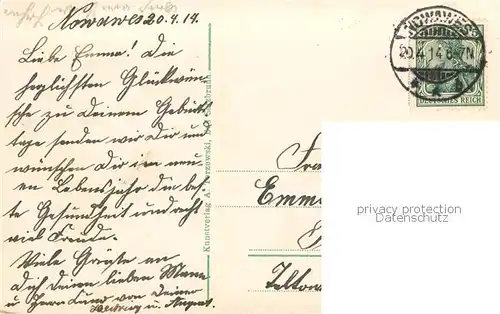 Nowawes 20.4.14.
Liebe Emma! Die
herzlichsten Glückwün-
sche zu Deinem Geburts-
tage senden wir Dir und
wünschen Dir im neu-
en Lebensjahr die bes-
te Gesundheit und recht
viel Freude.
Viele Grüsse an
Dich Deinen lieben Mann
u. Herrn Lund von Deiner
Hedwig u. August.
Kunstverlag A.
NOWAWES
20.4.14.6-7N
DEUTSCHES REICH
Fra
Emma
Telto
privacy protection
Datenschutz